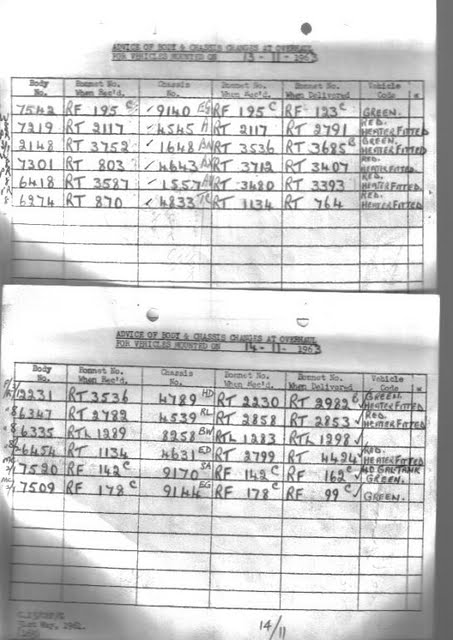 ADVICE OF BODY & CHASSIS CHANGES AT OVERHAUL
FOR VEHICLES MOUNTED ON 13-11-1963
Body No. Bonnet No. When Rec'd. Chassis No. Bonnet No. When Rec'd. Bonnet No. When Delivered Vehicle Code
7542 RF 195 C ✓ 9140 EG RF 195 C RF 123 C GREEN.
7219 RT 2117 ✓ 4545 RT 2117 RT 2791 RED. HEATER FITTED
2148 RT 3752 ✓ 1648 RT 3536 RT 3685 GREEN. HEATER FITTED
7301 RT 803 ✓ 4643 RT 3712 RT 3407 RED. HEATER FITTED
6418 RT 3587 ✓ 1557 RT 3480 RT 3393 RED. HEATER FITTED
6974 RT 870 ✓ 4833 RT 1134 RT 764 RED. HEATER FITTED
ADVICE OF BODY & CHASSIS CHANGES AT OVERHAUL
FOR VEHICLES MOUNTED ON 14-11-1963
Body No. Bonnet No. When Rec'd. Chassis No. Bonnet No. When Rec'd. Bonnet No. When Delivered Vehicle Code
2231 RT 3536 4789 HD RT 2230 RT 2982 G GREEN HEATER FITTED
6347 RT 2782 4539 RL RT 2858 RT 2853 ✓ RED. HEATER FITTED
6335 RTL 1289 8258 BW RTL 1283 RTL 1298 ✓
6454 RT 1134 4631 ED RT 2799 RT 4494 ✓ RED. HEATER FITTED
7520 RF 142 C 9170 SA RF 142 C RF 162 C ✓ 40 GAL TANK GREEN.
7509 RF 178 C 9144 EG RF 178 C RF 99 C ✓ GREEN.
31st May. 1961.
14/11